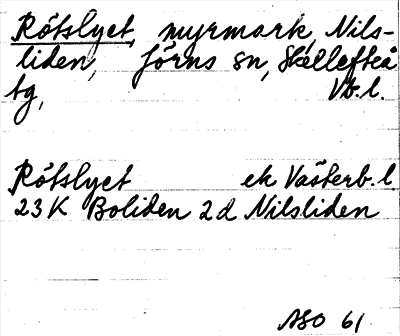 Rötslyet, myrmark, Nils-
liden, Jörns sn, Skellefteå
tg, Vb.l.
Rötslyet ek Västerb.l.
23K Boliden 2d Nilsliden
ASO 61